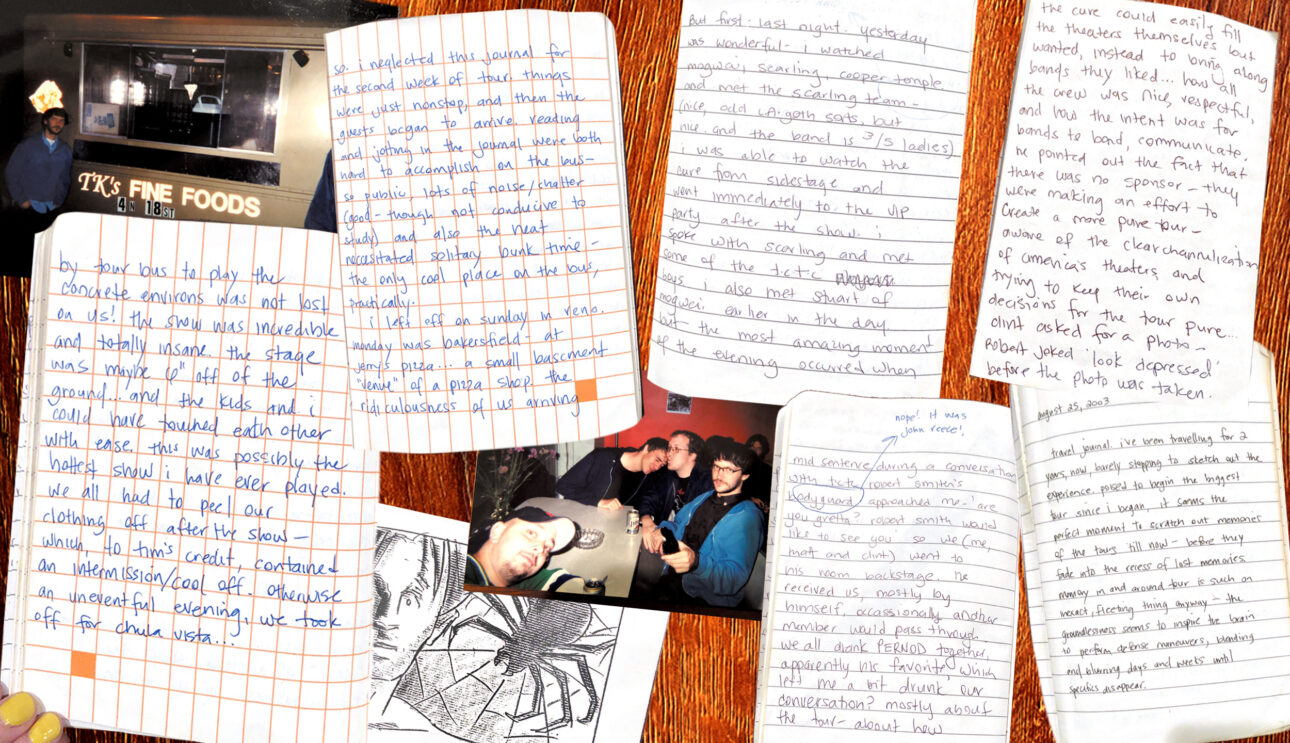 TK's FINE FOODS
4 N 18ST
so. i neglected this journal for
the second week of tour. things
were just nonstop, and then the
guests began to arrive. reading
and joting in the journal were both
hard to accomplish on the bus-
so public, lots of noise/chatter
(good - though not conducive to
study) and also the heat
necessitated solitary bunk time -
the only cool place on the bus,
practically.
i left off on sunday in reno.
monday was bakersfield - at
jerry's pizza... a small basement
"venue" of a pizza shop. the
ridiculousness of us arriving
by tour bus to play the
concrete environs was not lost
on us! the show was incredible
and totally insane. the stage
was maybe 6" off of the
ground... and the kids and i
could have touched eath other
with ease. this was possibly the
hottest show i have ever played.
we all had to peel our
clothing off after the show -
which, to tim's credit, contained
an intermission/cool off. otherwise
an uneventful evening, we took
off for chula vista...
But first - last night. yesterday
was wonderful - i watched
mogwai, scarling, cooper temple,
and met the scarling team -
(nice, odd L.A. goth sorts, but
nice. and the band is 3/5 ladies)
i was able to watch the
cure from sidestage and
went immediately to the VIP
party after the show. i
spoke with scarling and met
some of the tctc
boys. i also met stuart of
mogwai. earlier in the day
but - the most amazing moment
of the evening occurred when
nope! it was
john reece!
mid sentence during a conversation
with tctc robert smith's
bodyguard approached me - 'are
you gretta? robert smith would
like to see you. so we (me,
matt and clint) went to
his room backstage. he
received us, mostly by
himself. occassionally another
member would pass through.
we all drank PERNOD together,
apparently his favorite, which
left me a bit drunk. our
conversation? mostly about
the tour - about how
the cure could easily fill
the theaters themselves but
wanted, instead to bring along
bands they liked... how all
the crew was nice, respectful,
and how the intent was for
bands to band, communicate.
he pointed out the fact that
there was no sponsor - they
were making an effort to
create a more pure tour -
aware of the clearchannelization
of america's theaters, and
trying to keep their own
decisions for the tour pure...
clint asked for a photo -
Robert joked 'look depressed'
before the photo was taken.
august 25, 2003
travel journal. i've been travelling for 2
years, now, barely stopping to sketch out the
experience. poised to begin the biggest
tour since i began, it seems the
perfect moment to scratch out memories
of the tours till now - before they
fade into the recess of lost memories.
memory in and around tour is such an
inexact, fleeting thing anyway - the
groundlessness seems to inspire the brain
to perform defense maneuvers, blending
and blurring days and weeks until
specifics disappear.